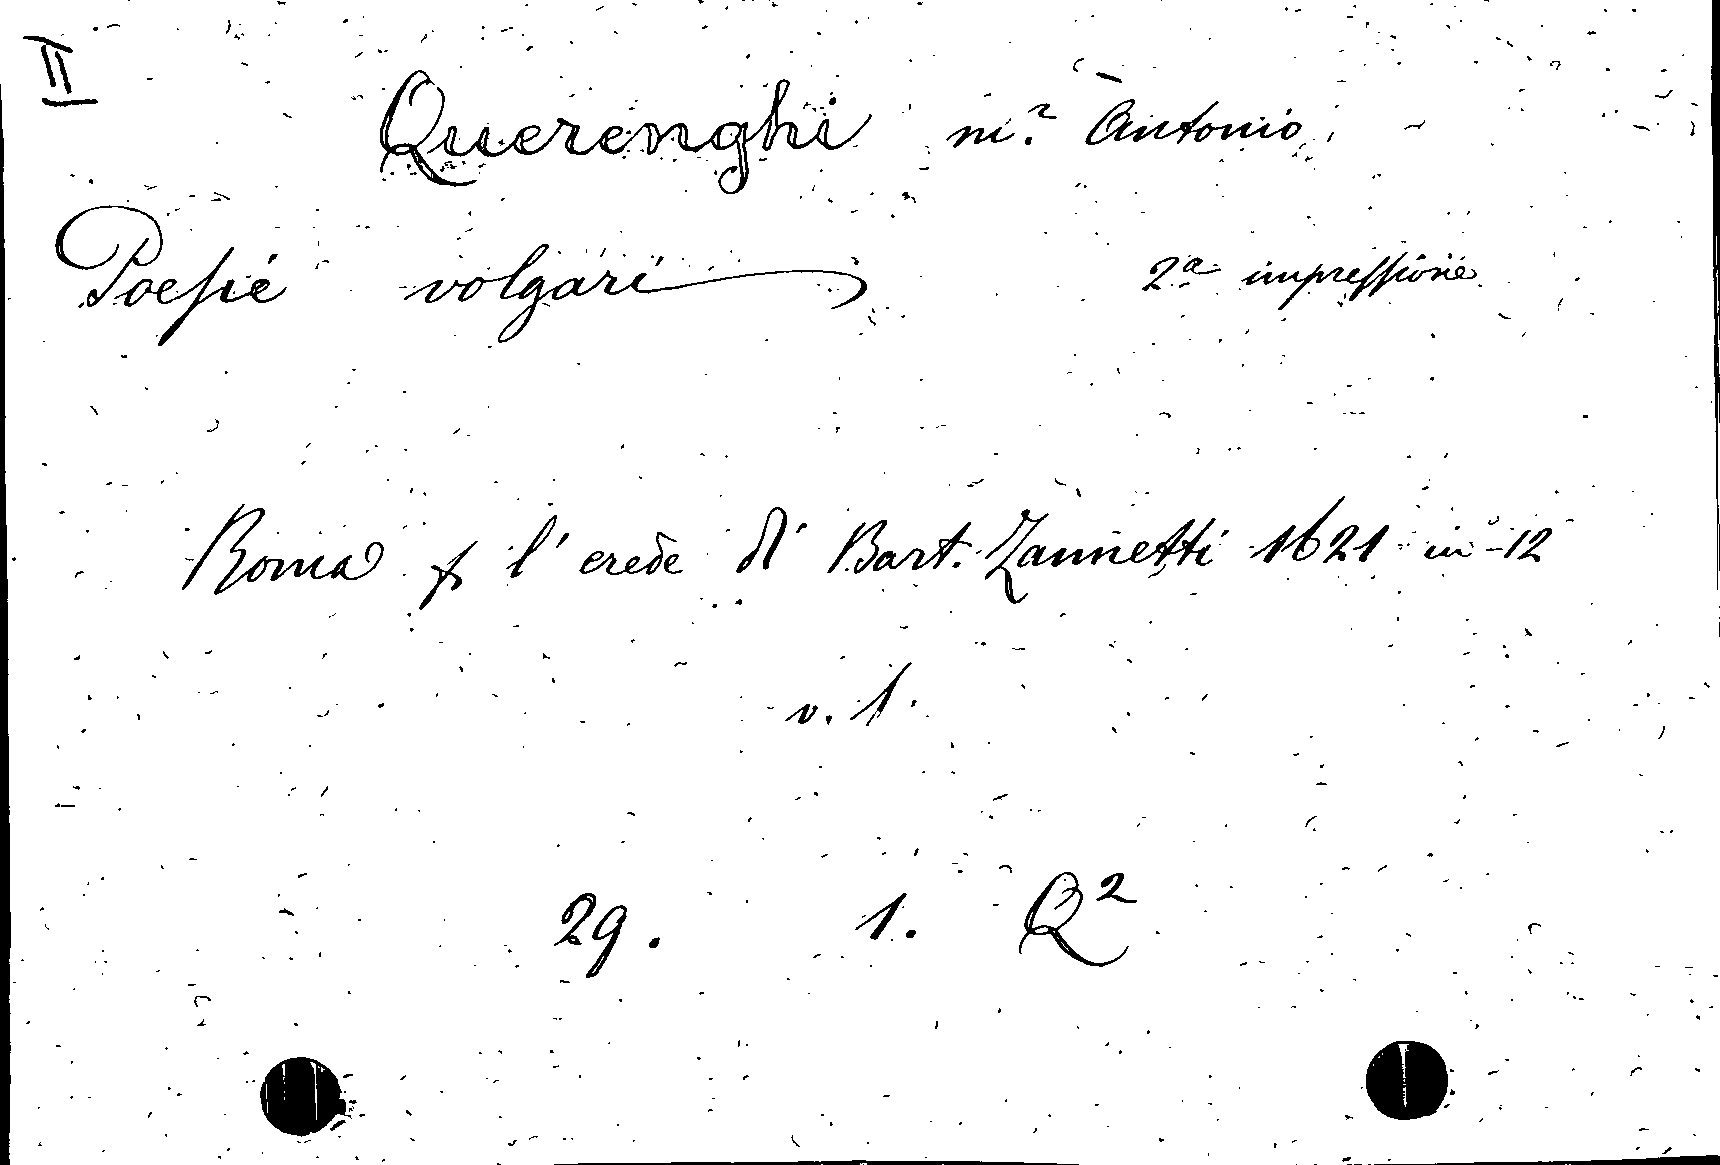 II
Querenghi m.r Antonio
Poesie volgari 2a impressione
Roma p l'erede di Bart. Zannetti 1621 in-12
v. 1.
29. 1. Q2